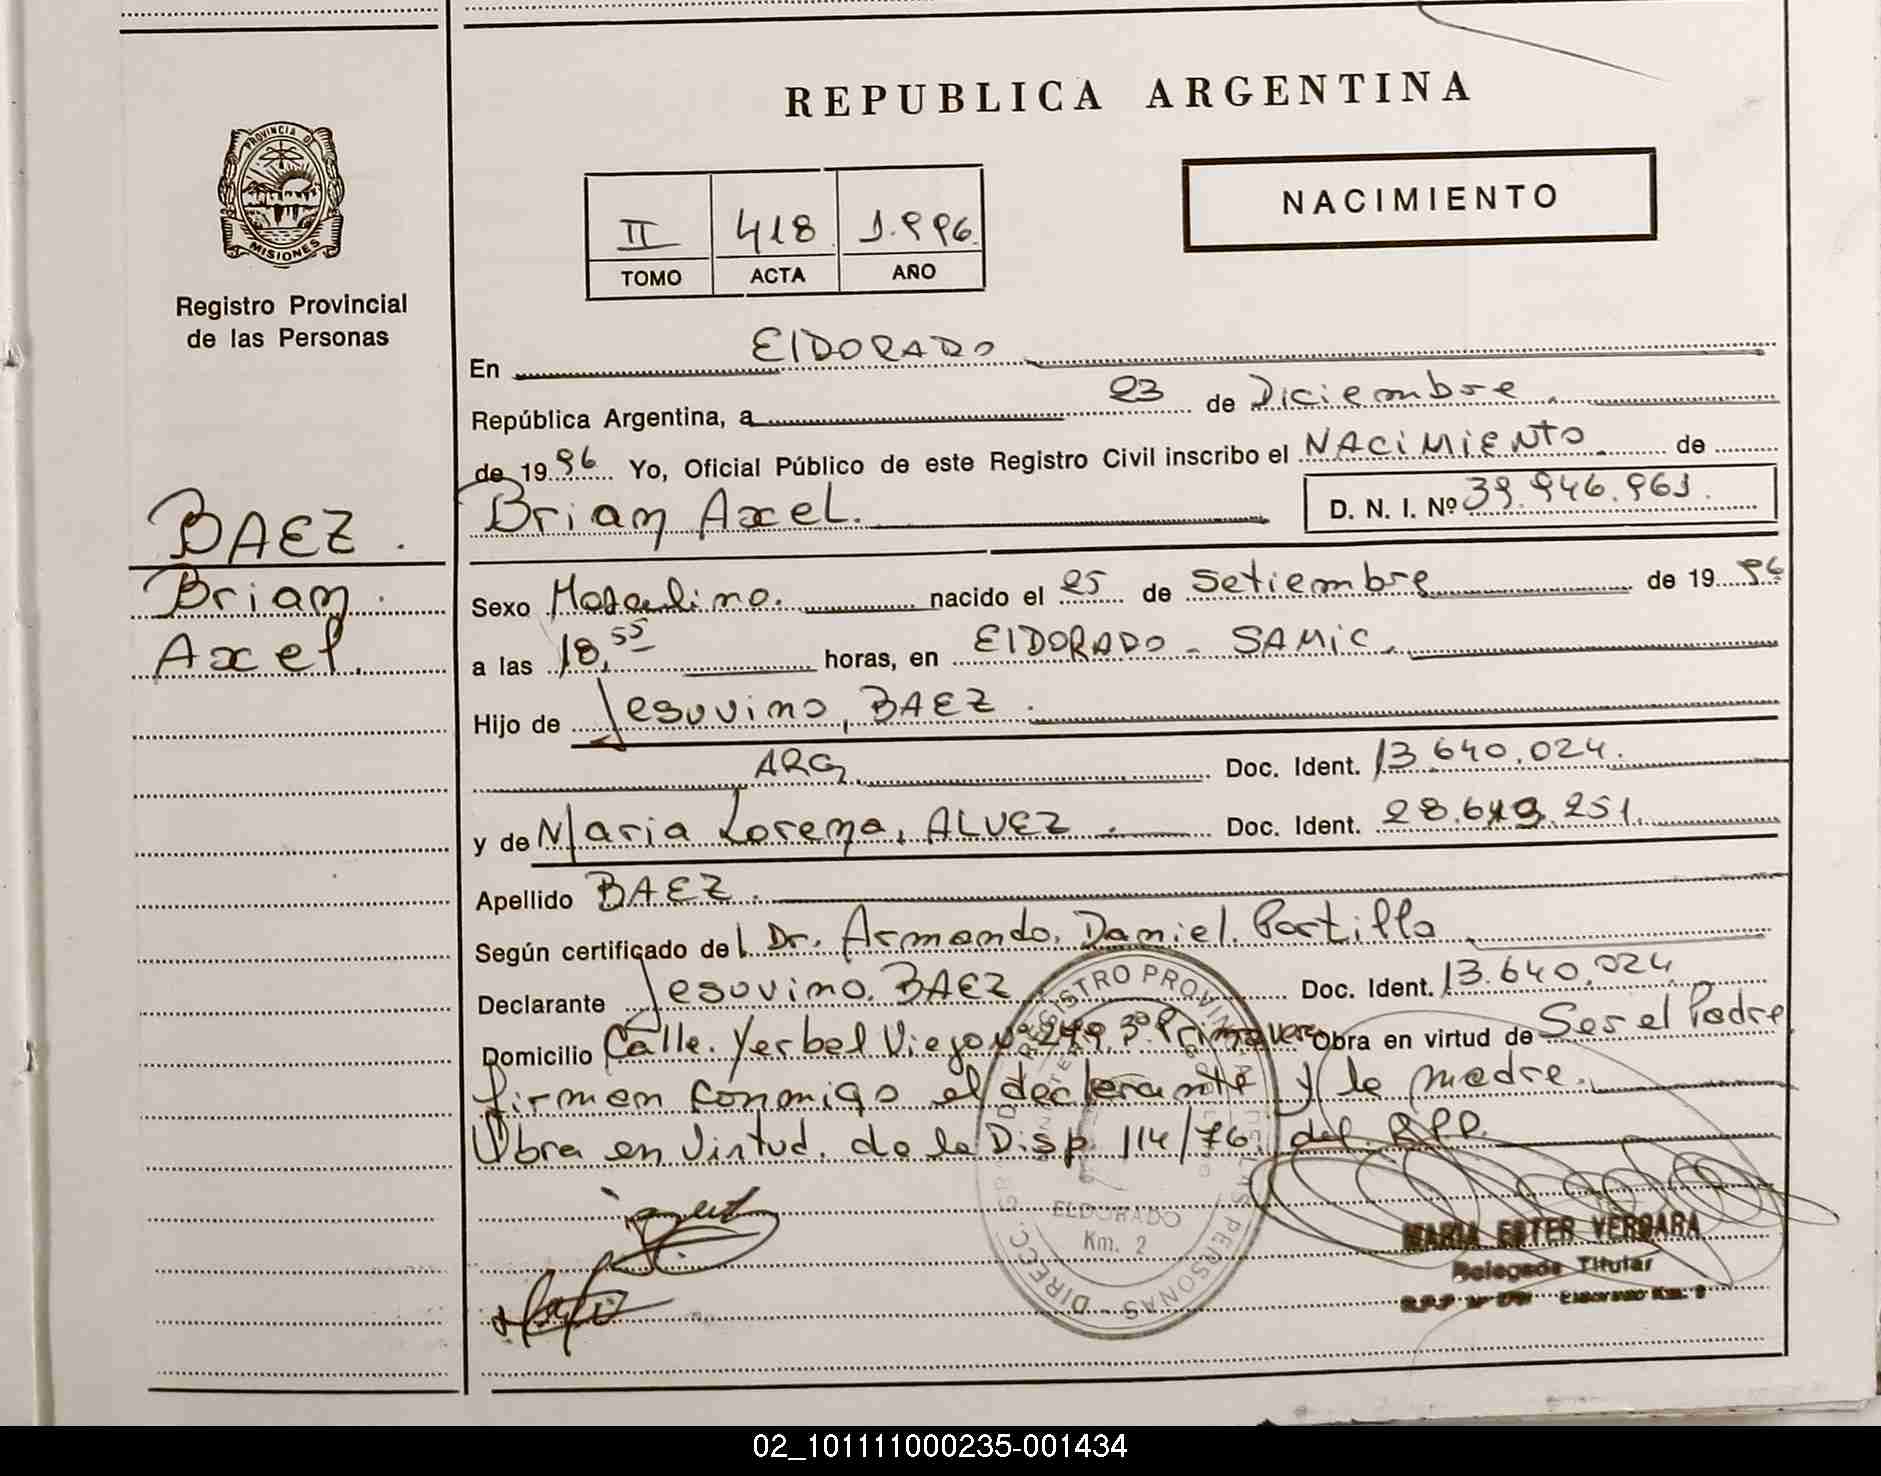 REPUBLICA ARGENTINA
PROVINCIA DE
MISIONES
Registro Provincial
de las Personas
II 418 1.996
TOMO ACTA AÑO
NACIMIENTO
En ElDORADO
República Argentina, a 23 de Diciembre
de 1996 Yo, Oficial Público de este Registro Civil inscribo el NACiMiENTO de
Brian Axel. D. N. I. Nº 39.946.961.
BAEZ.
Brian.
Axel.
Sexo Masculino. nacido el 25 de Setiembre de 1996
a las 18,55 horas, en ElDORADO - SAMiC.
Hijo de Jesuvino, BAEZ.
ARG Doc. Ident. 13.640.024.
y de Maria Lorena, ALVEZ. Doc. Ident. 28.619.251.
Apellido BAEZ.
Según certificado del Dr. Armando Daniel Portillo
Declarante Jesuvino. BAEZ Doc. Ident. 13.640.024
Domicilio Calle. Yerbal Viejo Nº 249 3º Primavera Obra en virtud de Ser el Padre
firman conmigo el declarante y la madre.
Obra en Virtud. de la Disp. 114/76. del. RPP.
ELDORADO
Km. 2
MARIA ESTER VERGARA
Delegada Titular
02_101111000235-001434